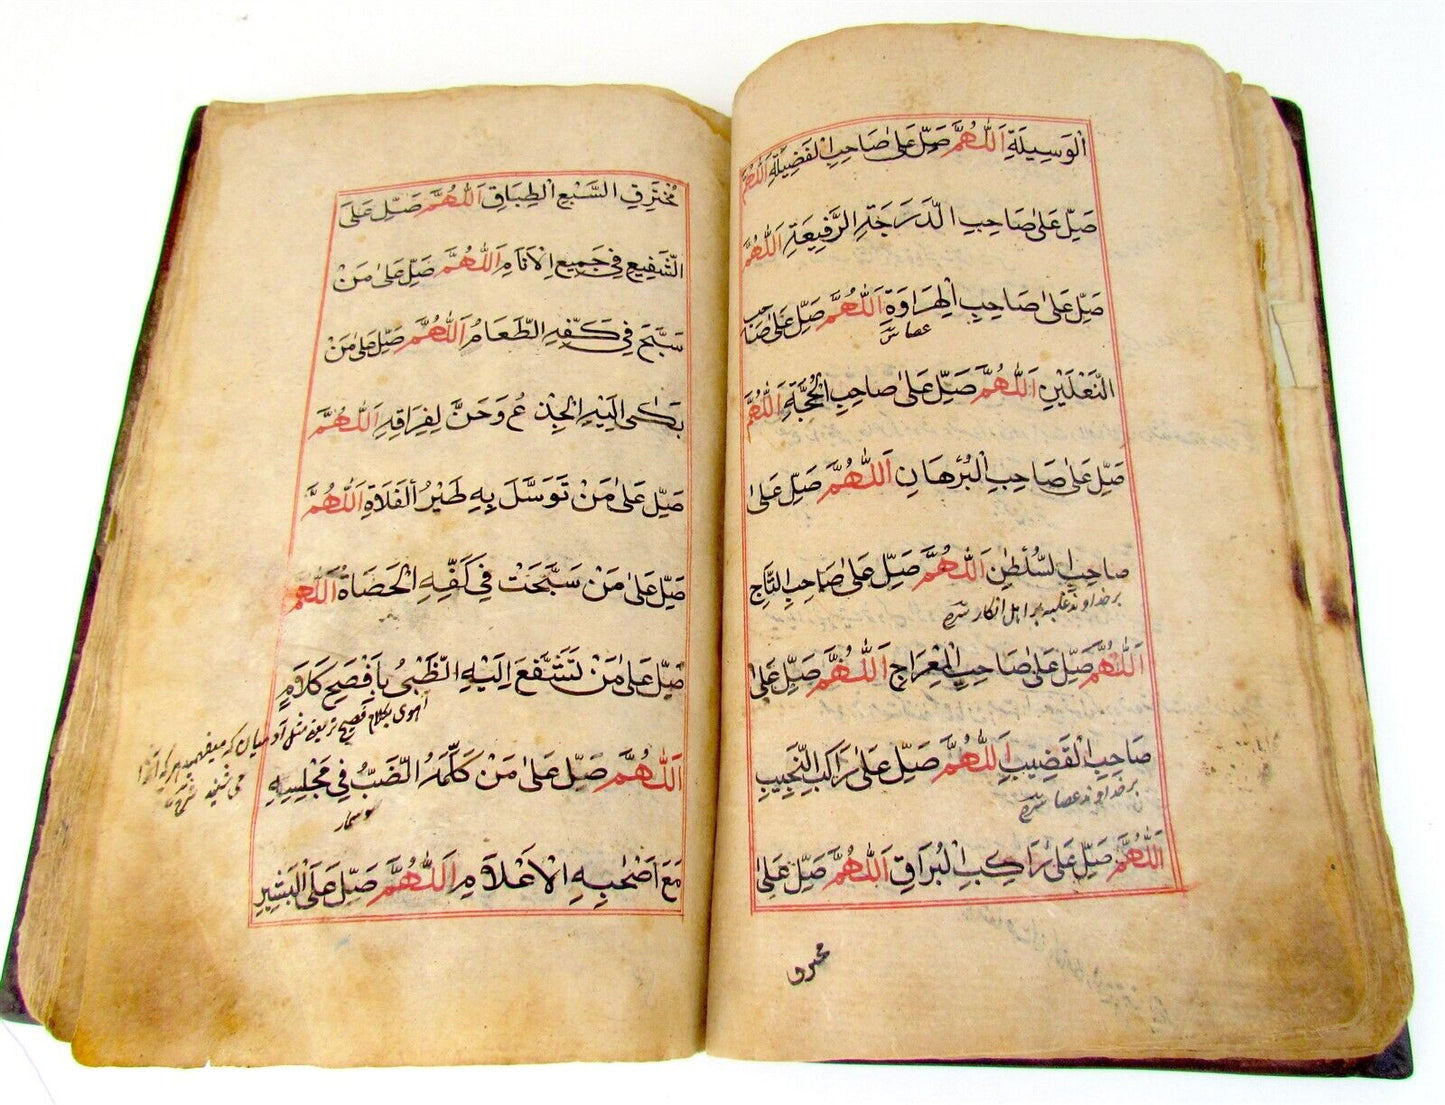 الْوَسِيلَةِ اَللّٰهُمَّ صَلِّ عَلٰى صَاحِبِ الْفَضِيلَةِ اَللّٰهُمَّ
صَلِّ عَلٰى صَاحِبِ الدَّرَجَةِ الرَّفِيعَةِ اَللّٰهُمَّ
صَلِّ عَلٰى صَاحِبِ الْهِرَاوَةِ اَللّٰهُمَّ صَلِّ عَلٰى صَاحِبِ
عصاش
النَّعْلَيْنِ اَللّٰهُمَّ صَلِّ عَلٰى صَاحِبِ الْحُجَّةِ اَللّٰهُمَّ
صَلِّ عَلٰى صَاحِبِ الْبُرْهَانِ اَللّٰهُمَّ صَلِّ عَلٰى
صَاحِبِ السُّلْطٰنِ اَللّٰهُمَّ صَلِّ عَلٰى صَاحِبِ التَّاجِ
بر خداوند غلبه بر اهل انكار شرح
اَللّٰهُمَّ صَلِّ عَلٰى صَاحِبِ الْمِعْرَاجِ اَللّٰهُمَّ صَلِّ عَلٰى
صَاحِبِ الْقَضِيبِ اَللّٰهُمَّ صَلِّ عَلٰى رَاكِبِ النَّجِيبِ
بر خداوند عصا شرح
اَللّٰهُمَّ صَلِّ عَلٰى رَاكِبِ الْبُرَاقِ اَللّٰهُمَّ صَلِّ عَلٰى
مخترق
مُخْتَرِقِ السَّبْعِ الطِّبَاقِ اَللّٰهُمَّ صَلِّ عَلَى
الشَّفِيعِ فِي جَمِيعِ الْاَنَامِ اَللّٰهُمَّ صَلِّ عَلٰى مَنْ
سَبَّحَ فِي كَفِّهِ الطَّعَامُ اَللّٰهُمَّ صَلِّ عَلٰى مَنْ
بَكٰى اِلَيْهِ الْجِذْعُ وَحَنَّ لِفِرَاقِهِ اَللّٰهُمَّ
صَلِّ عَلٰى مَنْ تَوَسَّلَ بِهِ طَيْرُ الْفَلَاةِ اَللّٰهُمَّ
صَلِّ عَلٰى مَنْ سَبَّحَتْ فِي كَفِّهِ الْحَصَاةُ اَللّٰهُمَّ
صَلِّ عَلٰى مَنْ تَشَفَّعَ اِلَيْهِ الظَّبْيُ بِاَفْصَحِ كَلَامٍ
آهوى بكلام فصيح مثل آدميان كه
اَللّٰهُمَّ صَلِّ عَلٰى مَنْ كَلَّمَهُ الضَّبُّ فِي مَجْلِسِهِ
سوسمار
مَعَ اَصْحٰبِهِ الْاَعْلَامِ اَللّٰهُمَّ صَلِّ عَلَى الْبَشِيرِ